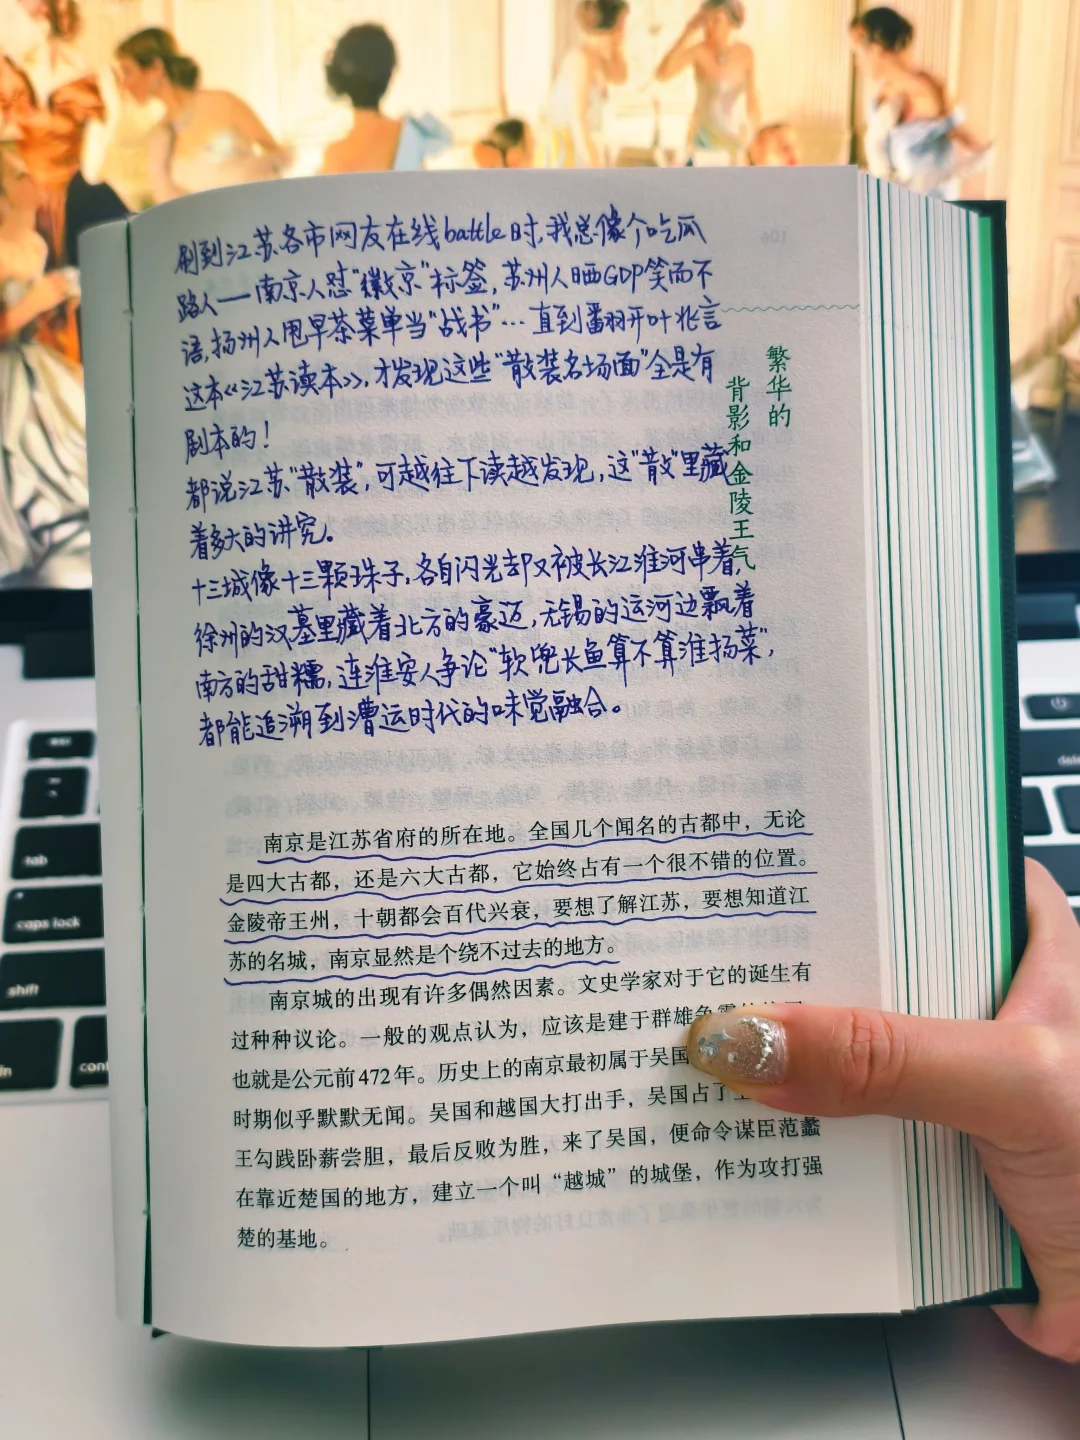 刷到江苏各市网友在线battle时,我总像个吃瓜
路人——南京人怼"徽京"标签,苏州人晒GDP笑而不
语,扬州人甩早茶菜单当"战书"…直到翻开叶兆言
这本《江苏读本》,才发现这些"散装名场面"全是有
剧本的!
都说江苏"散装",可越往下读越发现,这"散"里藏
着多大的讲究。
十三城像十三颗珠子,各自闪光却又被长江淮河串着,
徐州的汉墓里藏着北方的豪迈,无锡的运河边飘着
南方的甜糯,连淮安人争论"软兜长鱼算不算淮扬菜",
都能追溯到漕运时代的味觉融合。
繁华的
背影和金陵王气
南京是江苏省府的所在地。全国几个闻名的古都中，无论
是四大古都，还是六大古都，它始终占有一个很不错的位置。
金陵帝王州，十朝都会百代兴衰，要想了解江苏，要想知道江
苏的名城，南京显然是个绕不过去的地方。
南京城的出现有许多偶然因素。文史学家对于它的诞生有
过种种议论。一般的观点认为，应该是建于群雄
也就是公元前472年。历史上的南京最初属于吴国
时期似乎默默无闻。吴国和越国大打出手，吴国占了
王勾践卧薪尝胆，最后反败为胜，来了吴国，便命令谋臣范蠡
在靠近楚国的地方，建立一个叫“越城”的城堡，作为攻打强
楚的基地。
tab
caps lock
shift